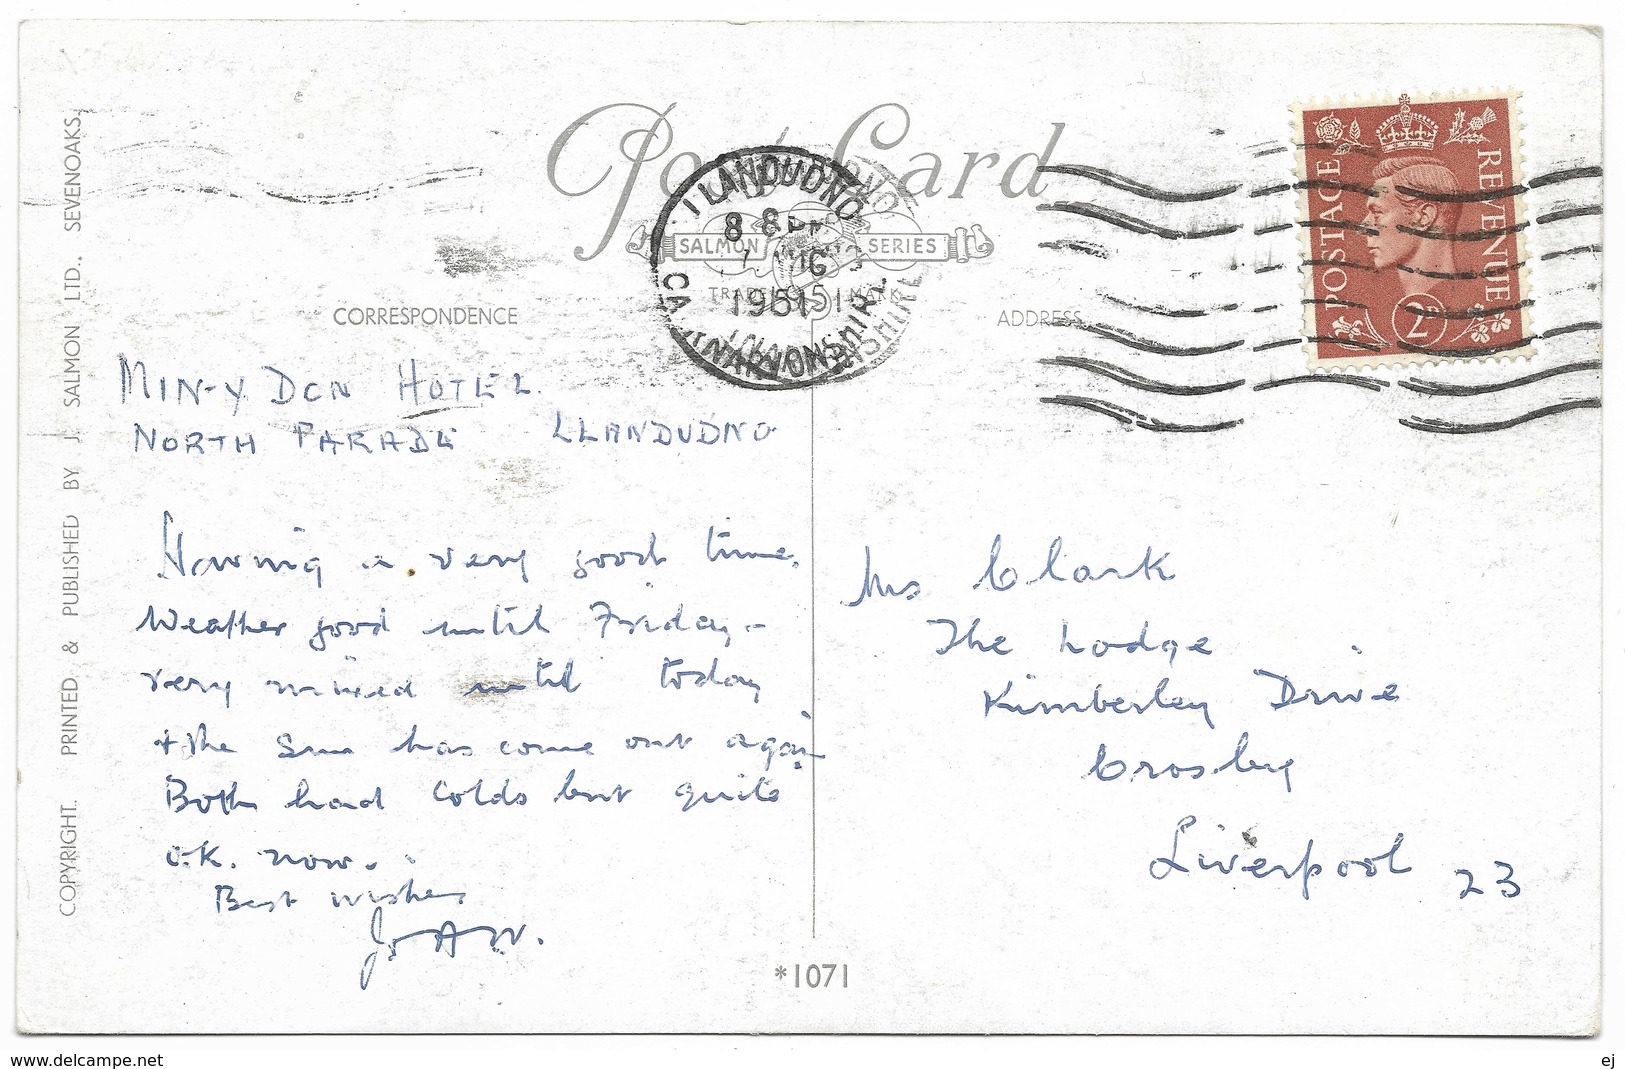 Post Card
SALMON SERIES
TRADE MARK
LLANDUDNO
8 PM
AUG
1951
CAERNARVONSHIRE
POSTAGE REVENUE
2D
CORRESPONDENCE
ADDRESS
MIN-Y DON HOTEL
NORTH PARADE LLANDUDNO
Having a very good time.
Weather good until Friday -
very mixed until today
+ the sun has come out again
Both had colds but quite
O.K. now.
Best wishes
Mrs Clark
The Lodge
Kimberley Drive
Crosby
Liverpool 23
*1071
COPYRIGHT. PRINTED & PUBLISHED BY J. SALMON LTD., SEVENOAKS.
www.delcampe.net
ej